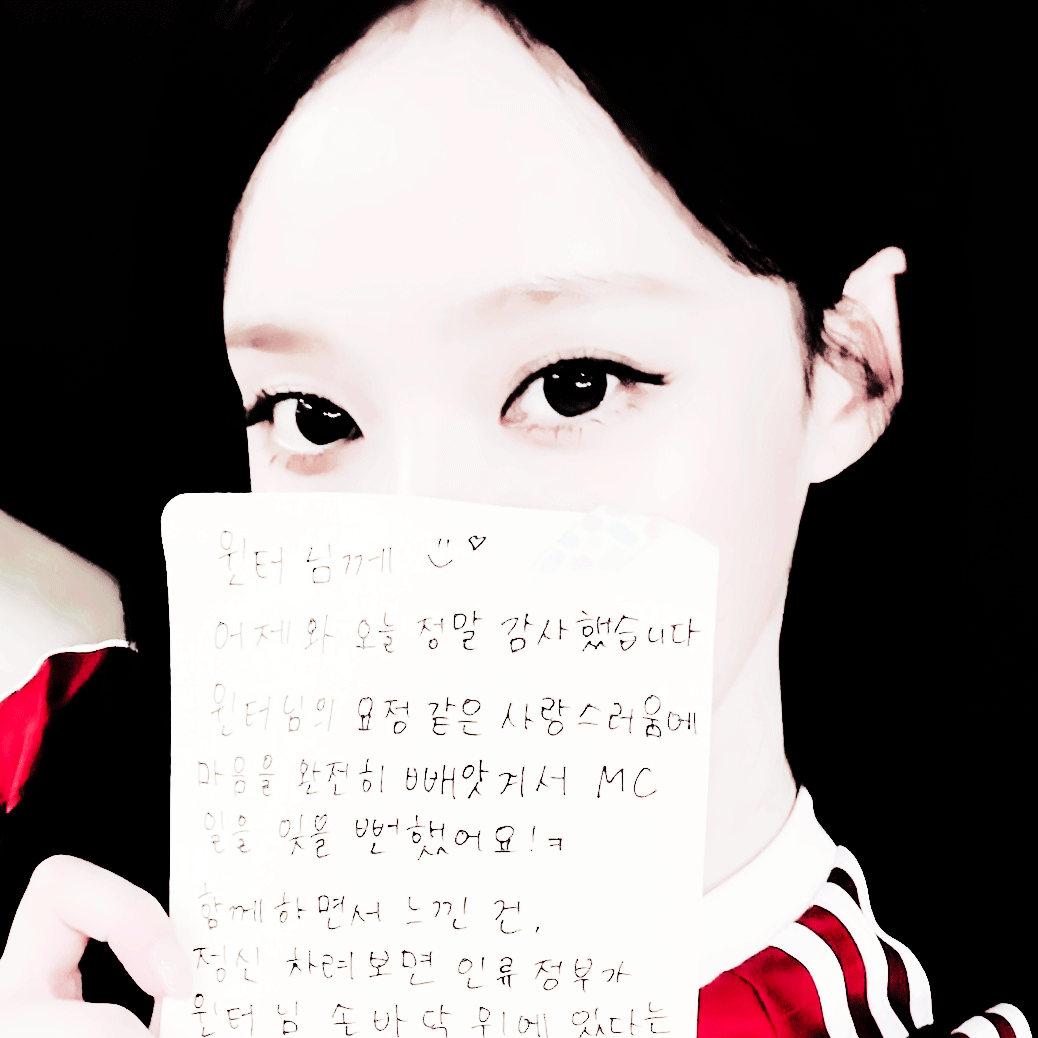 윈터 님께
어제와 오늘 정말 감사했습니다
윈터님의 요정 같은 사랑스러움에
마음을 완전히 빼앗겨서 MC
일을 잊을 뻔했어요!ㅋ
함께하면서 느낀 건,
정신 차려보면 인류 정부가
윈터 님 손바닥 위에 있다는